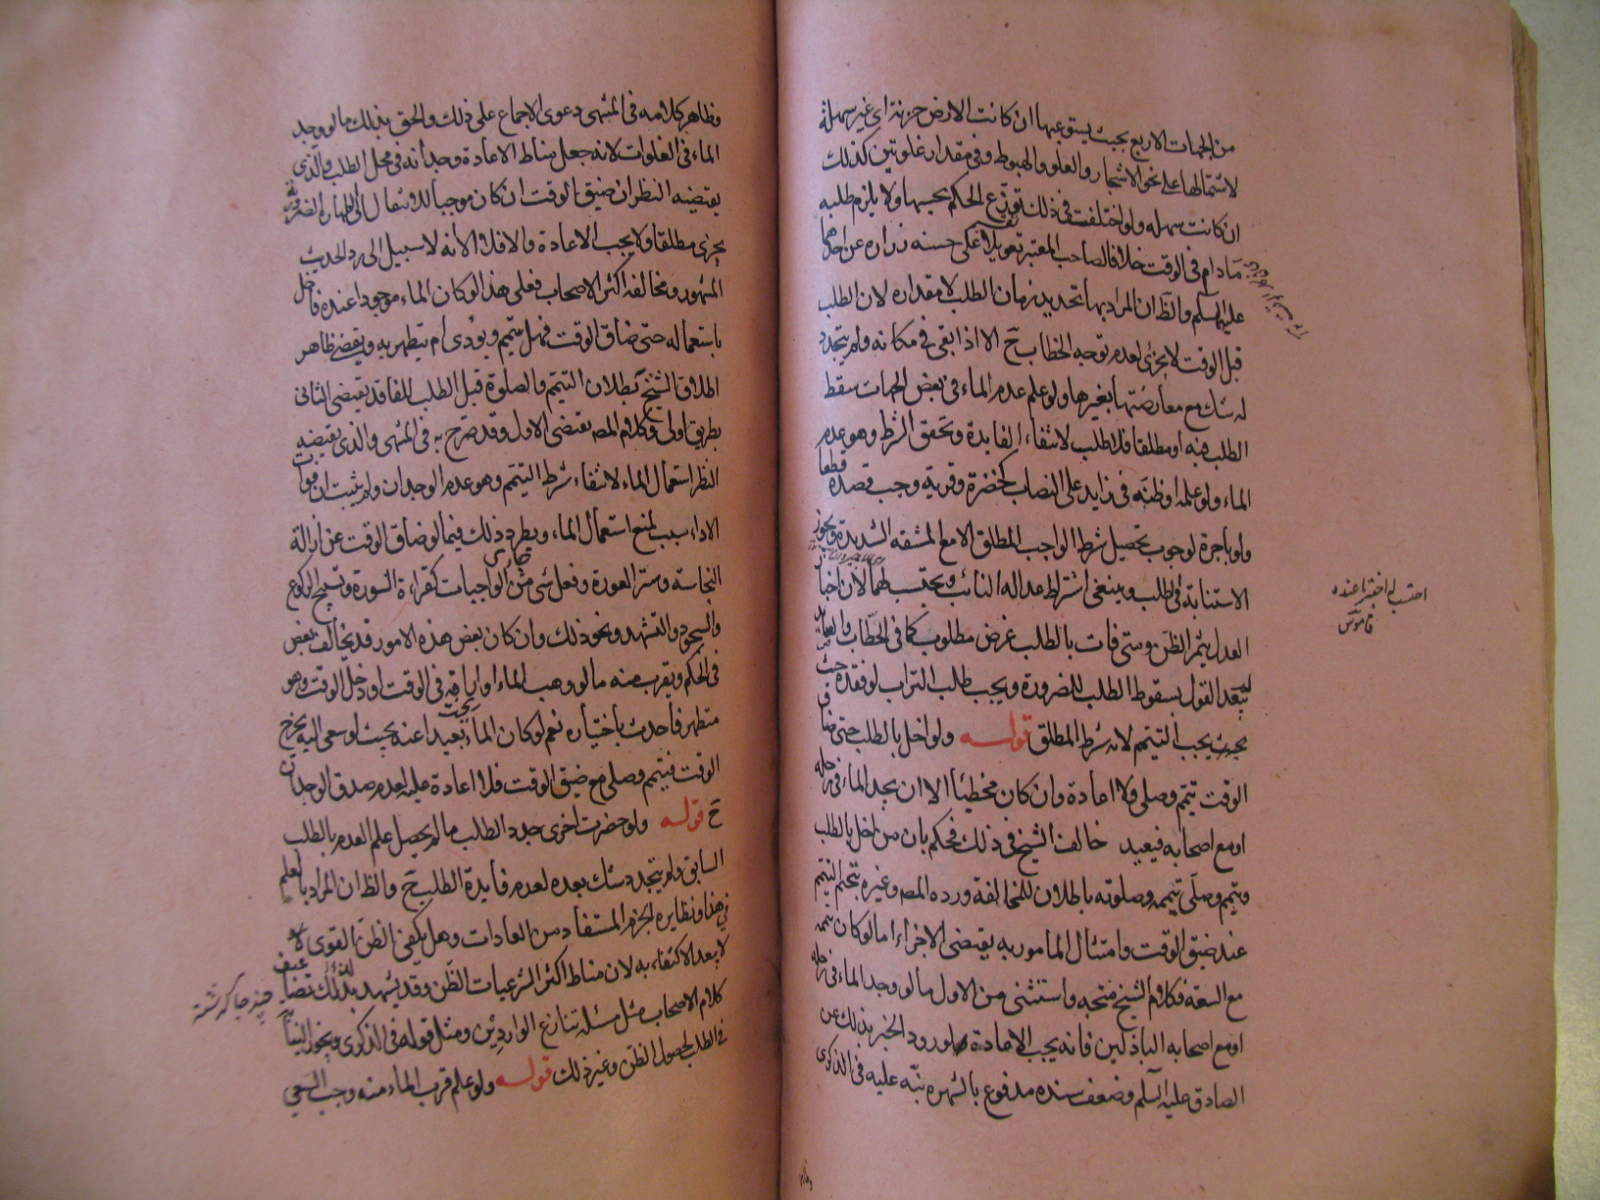 من الجهات الاربع بحيث يستوعبها ان كانت الارض حزنة اى غير سهلة
لاشتمالها على نحو الاشجار والعلو والهبوط وفى مقدار غلوتين كذلك
ان كانت سهله ولو اختلفت فى ذلك توزع الحكم بحسبها ولا يلزم طلبه
مادام فى الوقت خلافا لصاحب المعتبر تعويلا على حسنه زراره عن احدهما
عليهما السلم والظ ان المراد بها تحديد زمان الطلب لا مقداره لان الطلب
قبل الوقت لا يجزى لعدم توجه الخطاب ح الا اذا بقى فى مكانه ولم يتجدد
له شك مع معارضتها بغيرها ولو علم عدم الماء فى بعض الجهات سقط
الطلب فيه او مطلقا فلا طلب لانتفاء الفايدة وتحقق الشرط وهو عدم
الماء ولو علمه او ظنه فى زايد على النصاب كخضرة وقرية وجب قصده قطعا
ولو باجرة لوجوب تحصيل شرط الواجب المطلق الا مع المشقه الشديدة ويجوز
الاستنابة فى الطلب وينبغى اشتراط عداله النائب ويحتسب لهما لان اخبار
العدل يثمر الظن ومتى فات بالطلب غرض مطلوب كما فى الحطاب والصايد
لم يبعد القول بسقوط الطلب للضرورة ويجب طلب التراب لو فقده حيث
يجب التيمم لانه شرط المطلق قوله ولو اخل بالطلب حتى ضاق
الوقت تيمم وصلى ولا اعادة وان كان مخطيا الا ان يجد الماء فى رحله
او مع اصحابه فيعيد خالف الشيخ فى ذلك فحكم بان من اخل بالطلب
وتيمم وصلى تيممه وصلوته باطلان للمخالفة ورده المص وغيره بتحتم التيمم
عند ضيق الوقت وامتثال المامور به يقتضى الاجزاء اما لو كان تيممه
مع السعة فكلام الشيخ متجه واستثنى من الاول ما لو وجد الماء فى رحله
او مع اصحابه الباذلين فانه يجب الاعادة لورود الخبر بذلك عن
الصادق عليه السلم وضعف سنده مدفوع بالشهره نبه عليه فى الذكرى
احتسب له اختبر ما عنده
قاموس
وظاهر كلامه فى المنتهى دعوى الاجماع على ذلك والحق بذلك ما لو وجد
الماء فى الغلوات لانه جعل مناط الاعادة وجدانه فى محل الطلب والذى
يقتضيه النظر ان ضيق الوقت ان كان موجبا للانتقال الى طهارة الضرورة
يجزى مطلقا ولا يجب الاعادة والا فلا الا انه لا سبيل الى رد الحديث
المشهور ومخالفة اكثر الاصحاب فعلى هذا لو كان الماء موجودا عنده فاخل
باستعماله حتى ضاق الوقت فهل يتيمم ويؤدى ام يتطهر به ويقضى ظاهر
اطلاق الشيخ بطلان التيمم والصلوة قبل الطلب للفاقد يقتضى الثانى
بطريق اولى وكلام المص يقتضى الاول وقد صرح به فى المنتهى والذى يقتضيه
النظر استعمال الماء لانتفاء شرط التيمم وهو عدم الوجدان ولم يثبت ان فوات
الاداء سبب لمنع استعمال الماء ويطرد ذلك فيما لو ضاق الوقت عن ازالة
النجاسة وستر العورة وفعل شى من الواجبات كقراءة السورة وتسبيح الركوع
والسجود والتشهد ونحو ذلك وان كان بعض هذه الامور قد يخالف بعض
فى الحكم ويقرب منه ما لو وهب الماء او اراقه فى الوقت او دخل الوقت وهو
متطهر فاحدث باختياره نعم لو كان الماء بعيدا عنه بحيث لو سعى اليه يخرج
الوقت فتيمم وصلى مع ضيق الوقت فلا اعادة عليه لعدم صدق الوجدان
ح قوله ولو حضرت اخرى جدد الطلب ما لم يحصل علم العدم بالطلب
السابق ولم يتجدد شك بعده لعدم فايدة الطلب ح والظ ان المراد بالعلم
فى هذا ونظايره الجزم المستفاد من العادات وهل يكفى الظن القوى لا
لا يبعد الاكتفاء به لان مناط اكثر الشرعيات الظن وقد يشهد بذلك
كلام الاصحاب مثل مسئلة تنازع الواردين ومثل قوله فى الذكرى ويجوز النيابة
فى الطلب لحصول الظن وغير ذلك قوله ولو علم قرب الماء منه وجب السعى